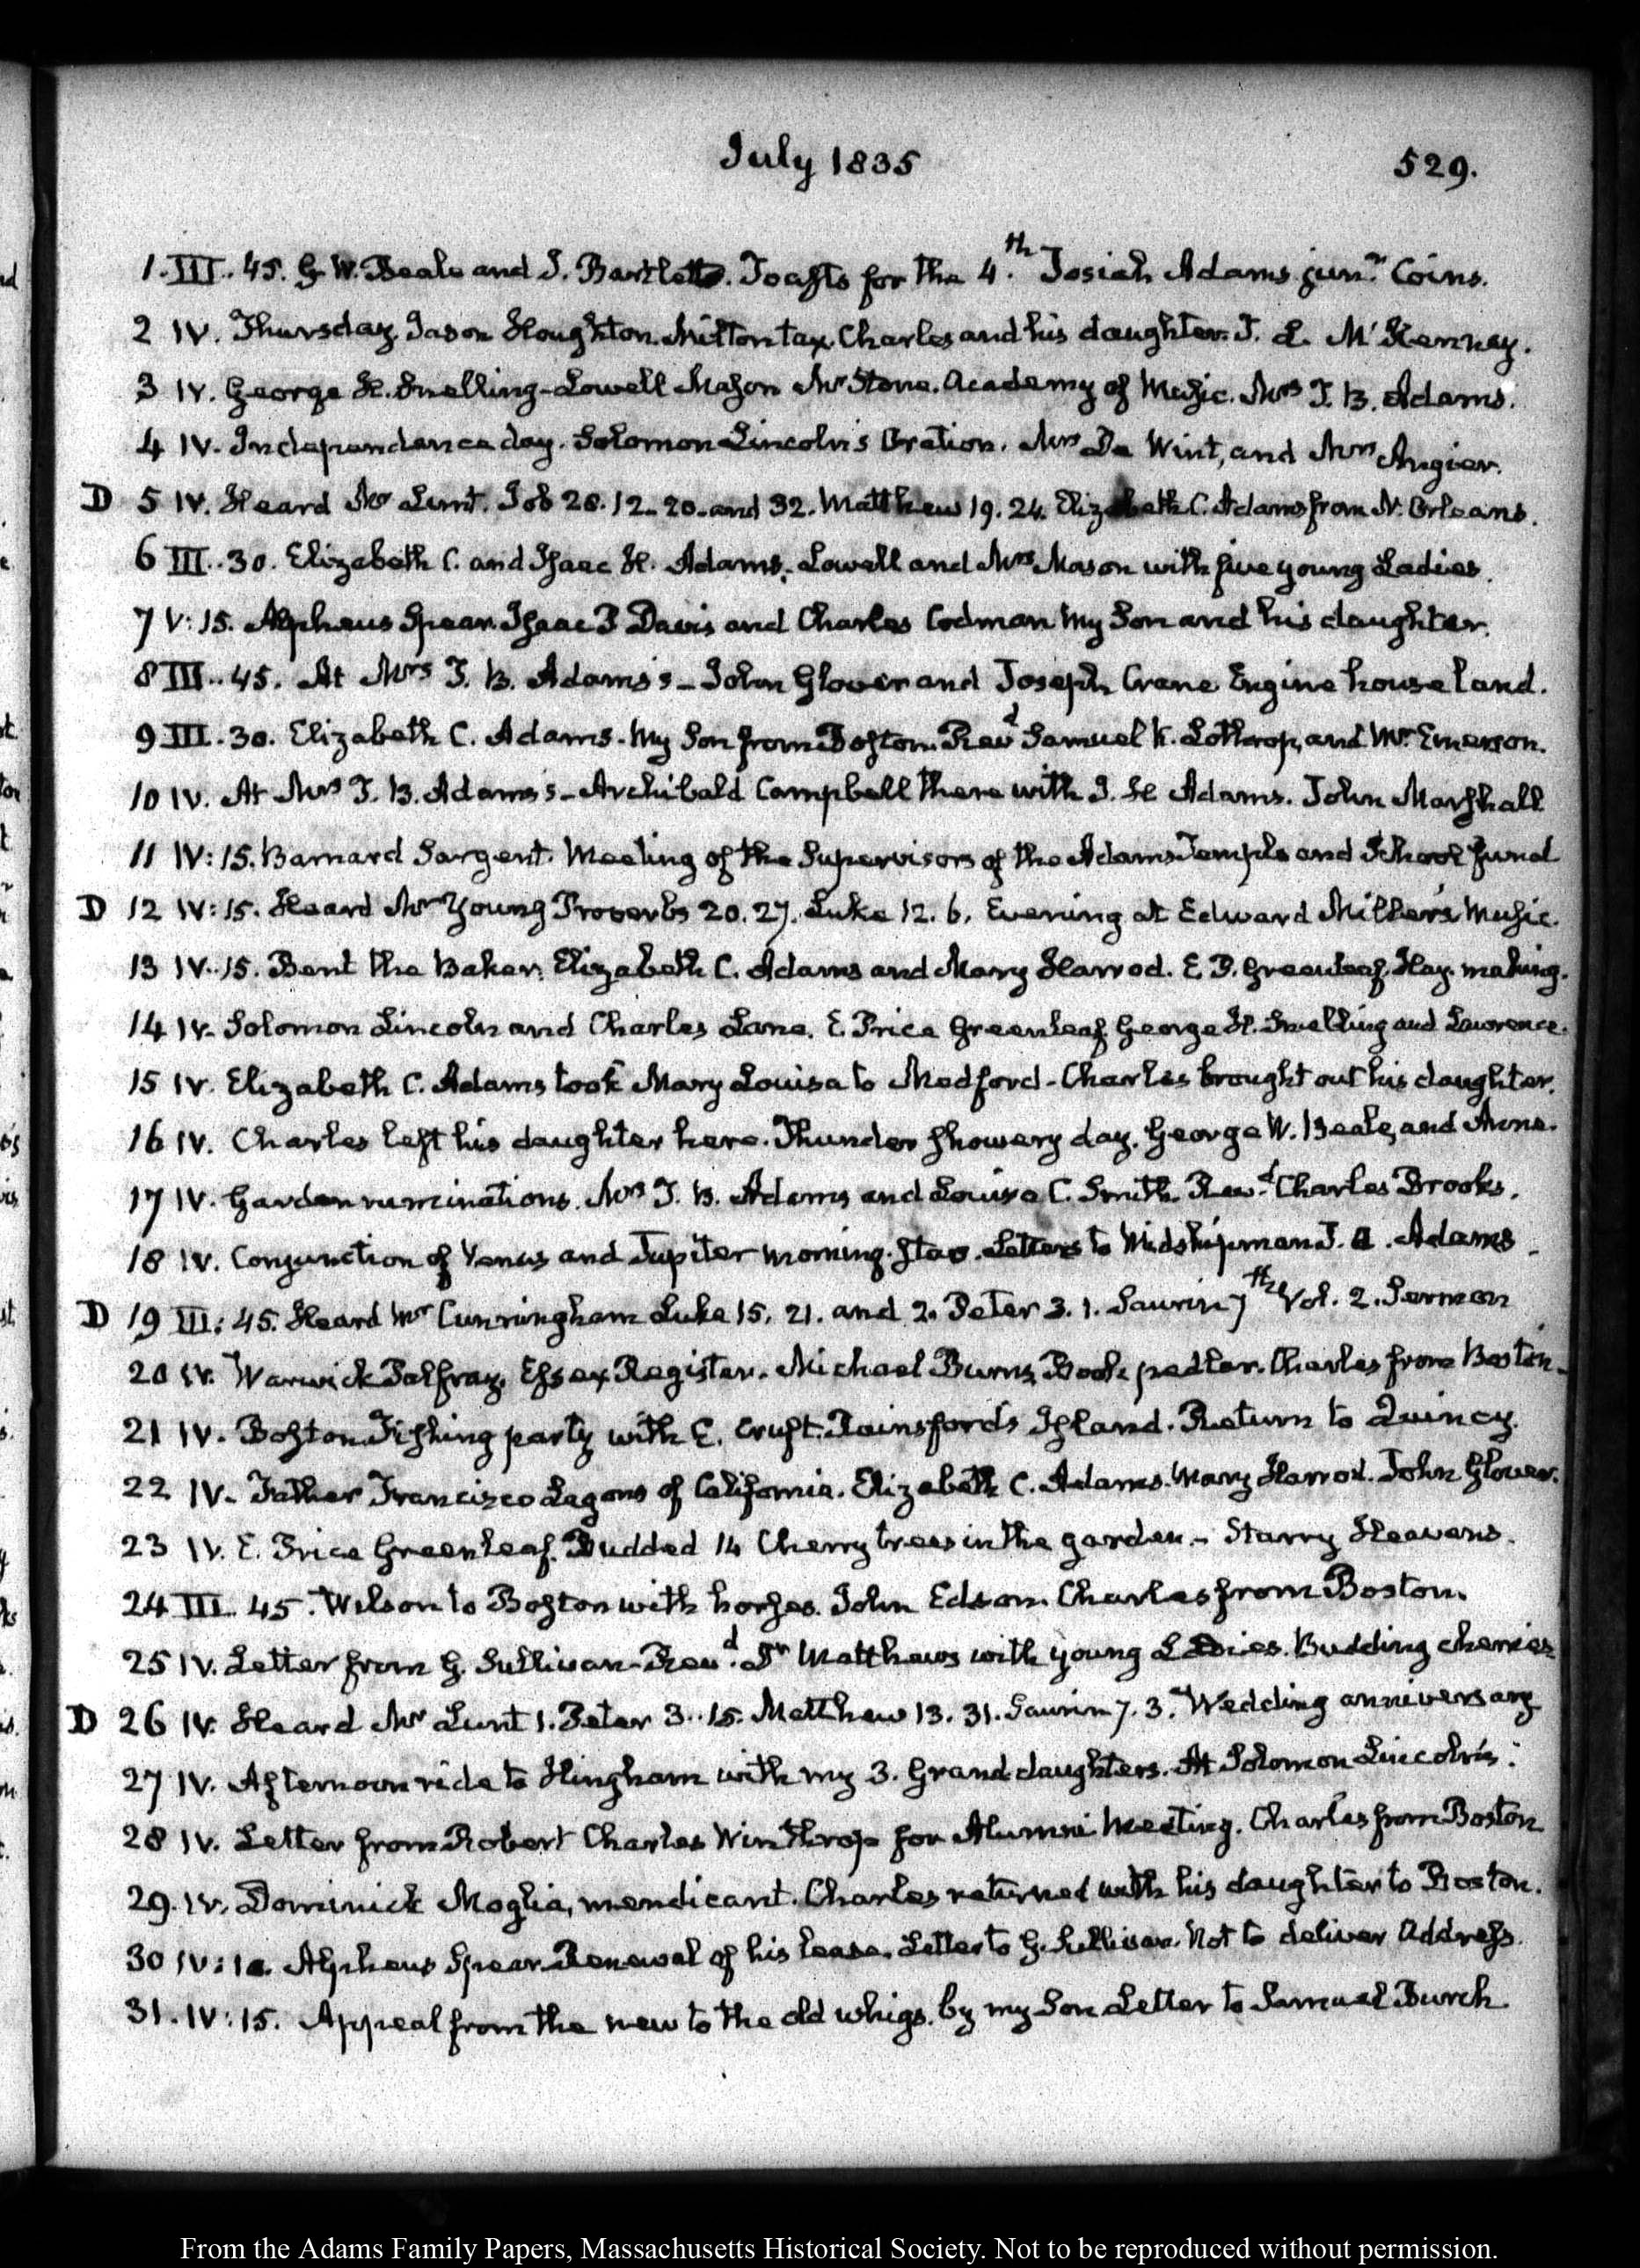 July 1835
529.
1. III.. 45. G. W. Beale and J. Bartlett. Toasts for the 4.th Josiah Adams junr. Coins.
2 IV. Thursday. Jason Houghton. Milton tax. Charles and his daughter. T. L. McKenney.
3 IV. George H. Snelling - Lowell Mason Mr Stone. Academy of Music. Mrs T. B. Adams.
4 IV. Independence day. Solomon Lincoln's Oration. Mrs De Wint, and Mrs Angier.
D 5 IV. Heard Mr Lunt. Job 28. 12-20. and 32. Matthew 19. 24. Elizabeth C. Adams from N. Orleans.
6 III.. 30. Elizabeth C. and Isaac H. Adams, Lowell and Mrs Mason with five young Ladies.
7 V: 15. Alpheus Spear. Isaac P Davis and Charles Codman My Son and his daughter.
8 III.. 45. At Mrs T. B. Adams's - John Glover and Joseph Crane Engine house land.
9 III.. 30. Elizabeth C. Adams. My Son from Boston. Revd Samuel K. Lothrop, and Mr Emerson.
10 IV. At Mrs T. B. Adams's - Archibald Campbell there with I. H Adams. John Marshall
11 IV: 15. Barnard Sargent. Meeting of the Supervisors of the Adams Temple and School fund
D 12 IV: 15. Heard Mr Young Proverbs 20. 27. Luke 12. 6. Evening at Edward Miller's Music.
13 IV.. 15. Bent the Baker. Elizabeth C. Adams and Mary Harrod. E P. Greenleaf. Hay making.
14 IV. Solomon Lincoln and Charles Lane. E. Price Greenleaf George H. Snelling and Lawrence.
15 IV. Elizabeth C. Adams took Mary Louisa to Medford - Charles brought out his daughter.
16 IV. Charles left his daughter here. Thunder showery day. George W. Beale, and Anne.
17 IV. Garden ruminations. Mrs T. B. Adams and Louisa C. Smith. Revd. Charles Brooks.
18 IV. Conjunction of Venus and Jupiter morning star. Letters to Midshipman J. Q. Adams
D 19 III: 45. Heard Mr Cunningham Luke 15. 21. and 2. Peter 3. 1. Saurin 7th Vol. 2. Sermon
20 IV. Warwick Palfray. Essex Register. Michael Burns Book pedler. Charles from Boston
21 IV. Boston Fishing party with E. Cruft. Rainsford's Island. Return to Quincy.
22 IV. Father Francisco of California. Elizabeth C. Adams. Mary Harrod. John Glover.
23 IV. E. Price Greenleaf. Budded 14 Cherry trees in the garden. - Starry Heavens.
24 III. 45. Wilson to Boston with horses. John Edson. Charles from Boston.
25 IV. Letter from G. Sullivan - Revd. Dr Matthews with young Ladies. Budding cherries
D 26 IV. Heard Mr Lunt 1. Peter 3.. 15. Matthew 13. 31. Saurin 7. 3. Wedding anniversary
27 IV. Afternoon ride to Hingham with my 3. Grand daughters. At Solomon Lincoln's.
28 IV. Letter from Robert Charles Winthrop for Alumni meeting. Charles from Boston
29. IV. Dominick Moglia, mendicant. Charles returned with his daughter to Boston.
30 IV: Alpheus Spear. Renewal of his lease. Letter to G. Sullivan. Not to deliver Address.
31. IV: 15. Appeal from the new to the old whigs. by my Son Letter to Samuel Burch
From the Adams Family Papers, Massachusetts Historical Society. Not to be reproduced without permission.